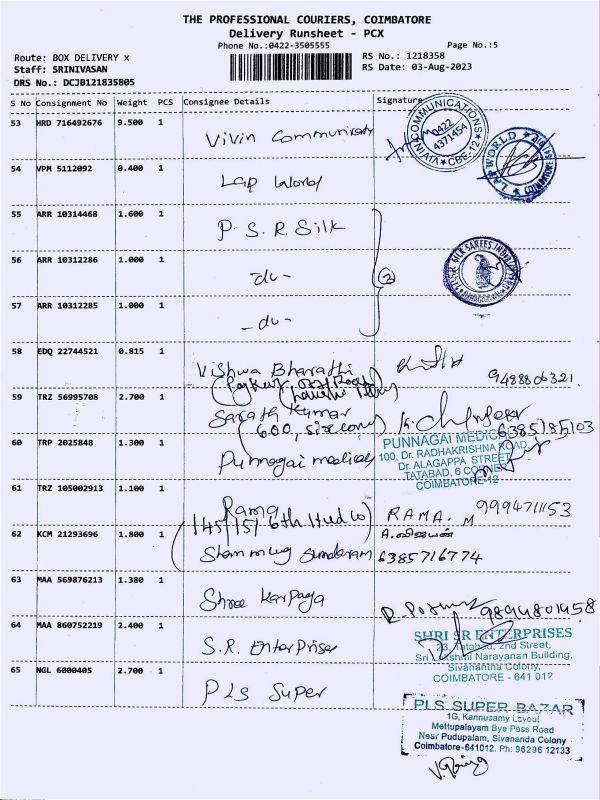 THE PROFESSIONAL COURIERS, COIMBATORE
Delivery Runsheet - PCX
Phone No.:0422-3505555 Page No.:5
Route: BOX DELIVERY x RS No.: 1218358
Staff: SRINIVASAN RS Date: 03-Aug-2023
DRS No.: DCJB121835805
S No Consignment No Weight PCS Consignee Details Signature
53 HRD 716492676 9.500 1
Vivin
COMMUNICATIONS
0422
4371454
CBE-12
54 VPM 5112092 0.400 1
Lap World
LAP WORLD
COIMBATORE
55 ARR 10314468 1.600 1
P. S. R. Silk
56 ARR 10312286 1.000 1
- do -
2
SILK SAREES
57 ARR 10312285 1.000 1
- do -
58 EDQ 22744521 0.815 1
Vishwa Bharathi
9488806321
59 TRZ 56995708 2.700 1
Sarath Kumar
60 TRP 2025848 1.300 1
Punnagai medicals
PUNNAGAI MEDIC
100, Dr. RADHAKRISHNA ROAD,
Dr. ALAGAPPA STREET
TATABAD, 6 CORNER
COIMBATORE-12
61 TRZ 105002913 1.100 1
Rama
RAMA. M 9994711153
62 KCM 21293696 1.800 1
Shanmuga Sundaram
6385716774
63 MAA 569876213 1.380 1
Shree Karpaga
9894801458
64 MAA 860752219 2.400 1
S.R. Enterprises
SHRI SR ENTERPRISES
23, Tatabad, 2nd Street,
Sri Lakshmi Narayanan Building,
Sivanantha Colony,
COIMBATORE - 641 012
65 NGL 6000405 2.700 1
PLS Super
PLS SUPER BAZAR
1G, Kannusamy Layout
Mettupalayam Bye Pass Road
Near Pudupalam, Sivananda Colony
Coimbatore-641012. Ph: 96296 12133